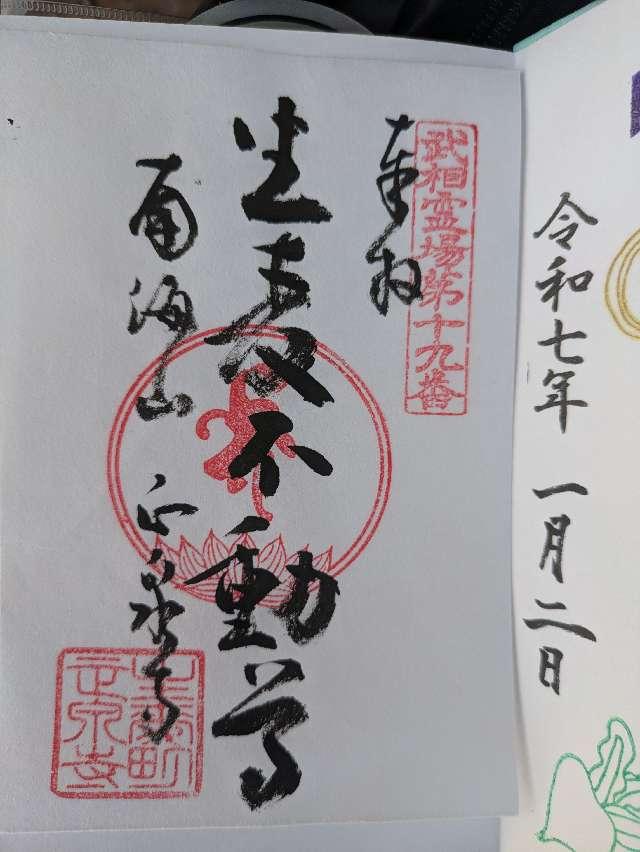 令和七年 一月二日
武相霊場第十九番
奉拝
生麦不動尊
南海山 正泉寺
生麦町
正泉寺